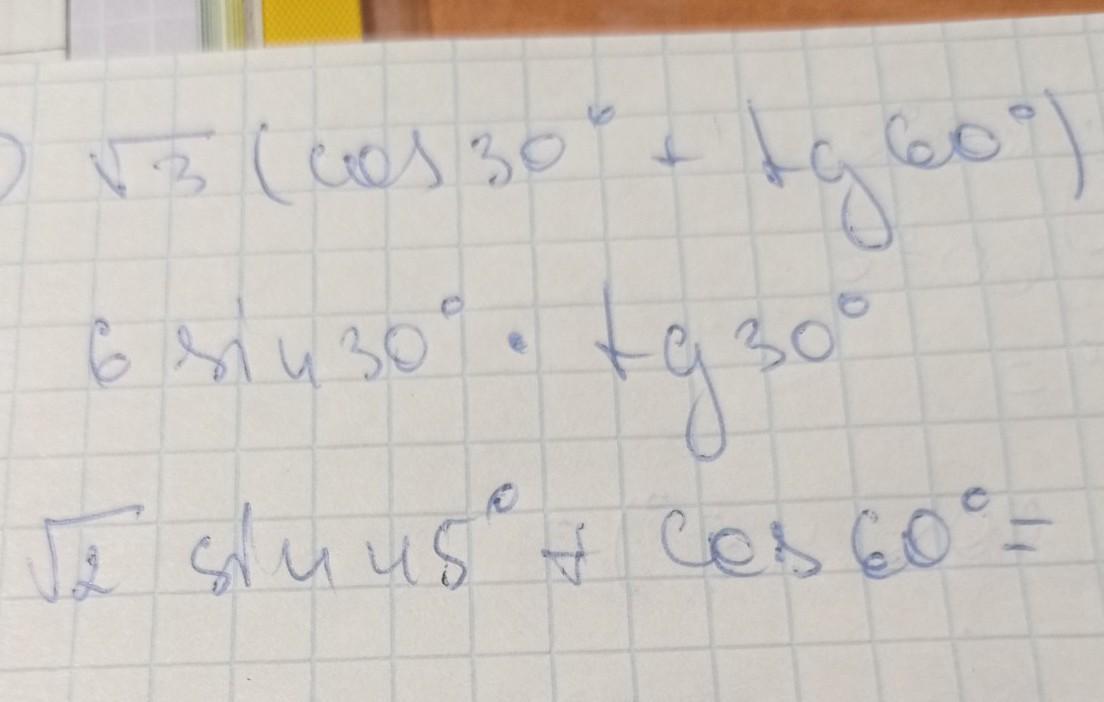 ) √3 (cos 30° + tg 60°)
6 sin 30° · tg 30°
√2 sin 45° + cos 60° =